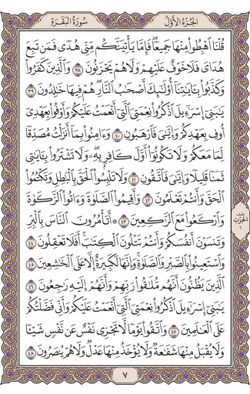 الجزء الأول سورة البقرة
قلنا اهبطوا منها جميعا فإما يأتينكم مني هدى فمن تبع
هداي فلا خوف عليهم ولا هم يحزنون ٣٨ والذين كفروا
وكذبوا بآياتنا أولئك أصحاب النار هم فيها خالدون ٣٩
يبني إسرءيل اذكروا نعمتي التي أنعمت عليكم وأوفوا بعهدي
أوف بعهدكم وإيي فارهبون ٤٠ وءامنوا بما أنزلت مصدقا
لما معكم ولا تكونوا أول كافر به ولا تشتروا بآيتي
ثمنا قليلا وإيي فاتقون ٤١ ولا تلبسوا الحق بالبطل وتكتموا
الحق وأنتم تعلمون ٤٢ وأقيموا الصلوة وءاتوا الزكوة
واركعوا مع الركعين ٤٣ أتأمرون الناس بالبر
وتنسون أنفسكم وأنتم تتلون الكتب أفلا تعقلون ٤٤
واستعينوا بالصبر والصلوة وإنها لكبيرة إلا على الخشعين ٤٥
الذين يظنون أنهم ملقوا ربهم وأنهم إليه رجعون ٤٦
يبني إسرءيل اذكروا نعمتي التي أنعمت عليكم وأني فضلتكم
على العلمين ٤٧ واتقوا يوما لا تجزي نفس عن نفس شيئا
ولا يقبل منها شفعة ولا يؤخذ منها عدل ولا هم ينصرون ٤٨
٧